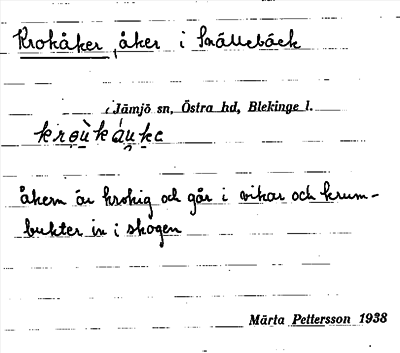 Krokåker, åker i Snällebäck
i Jämjö sn, Östra hd, Blekinge l.
åkern är krokig och går i vikar och krum-
bukter in i skogen
Märta Pettersson 1938